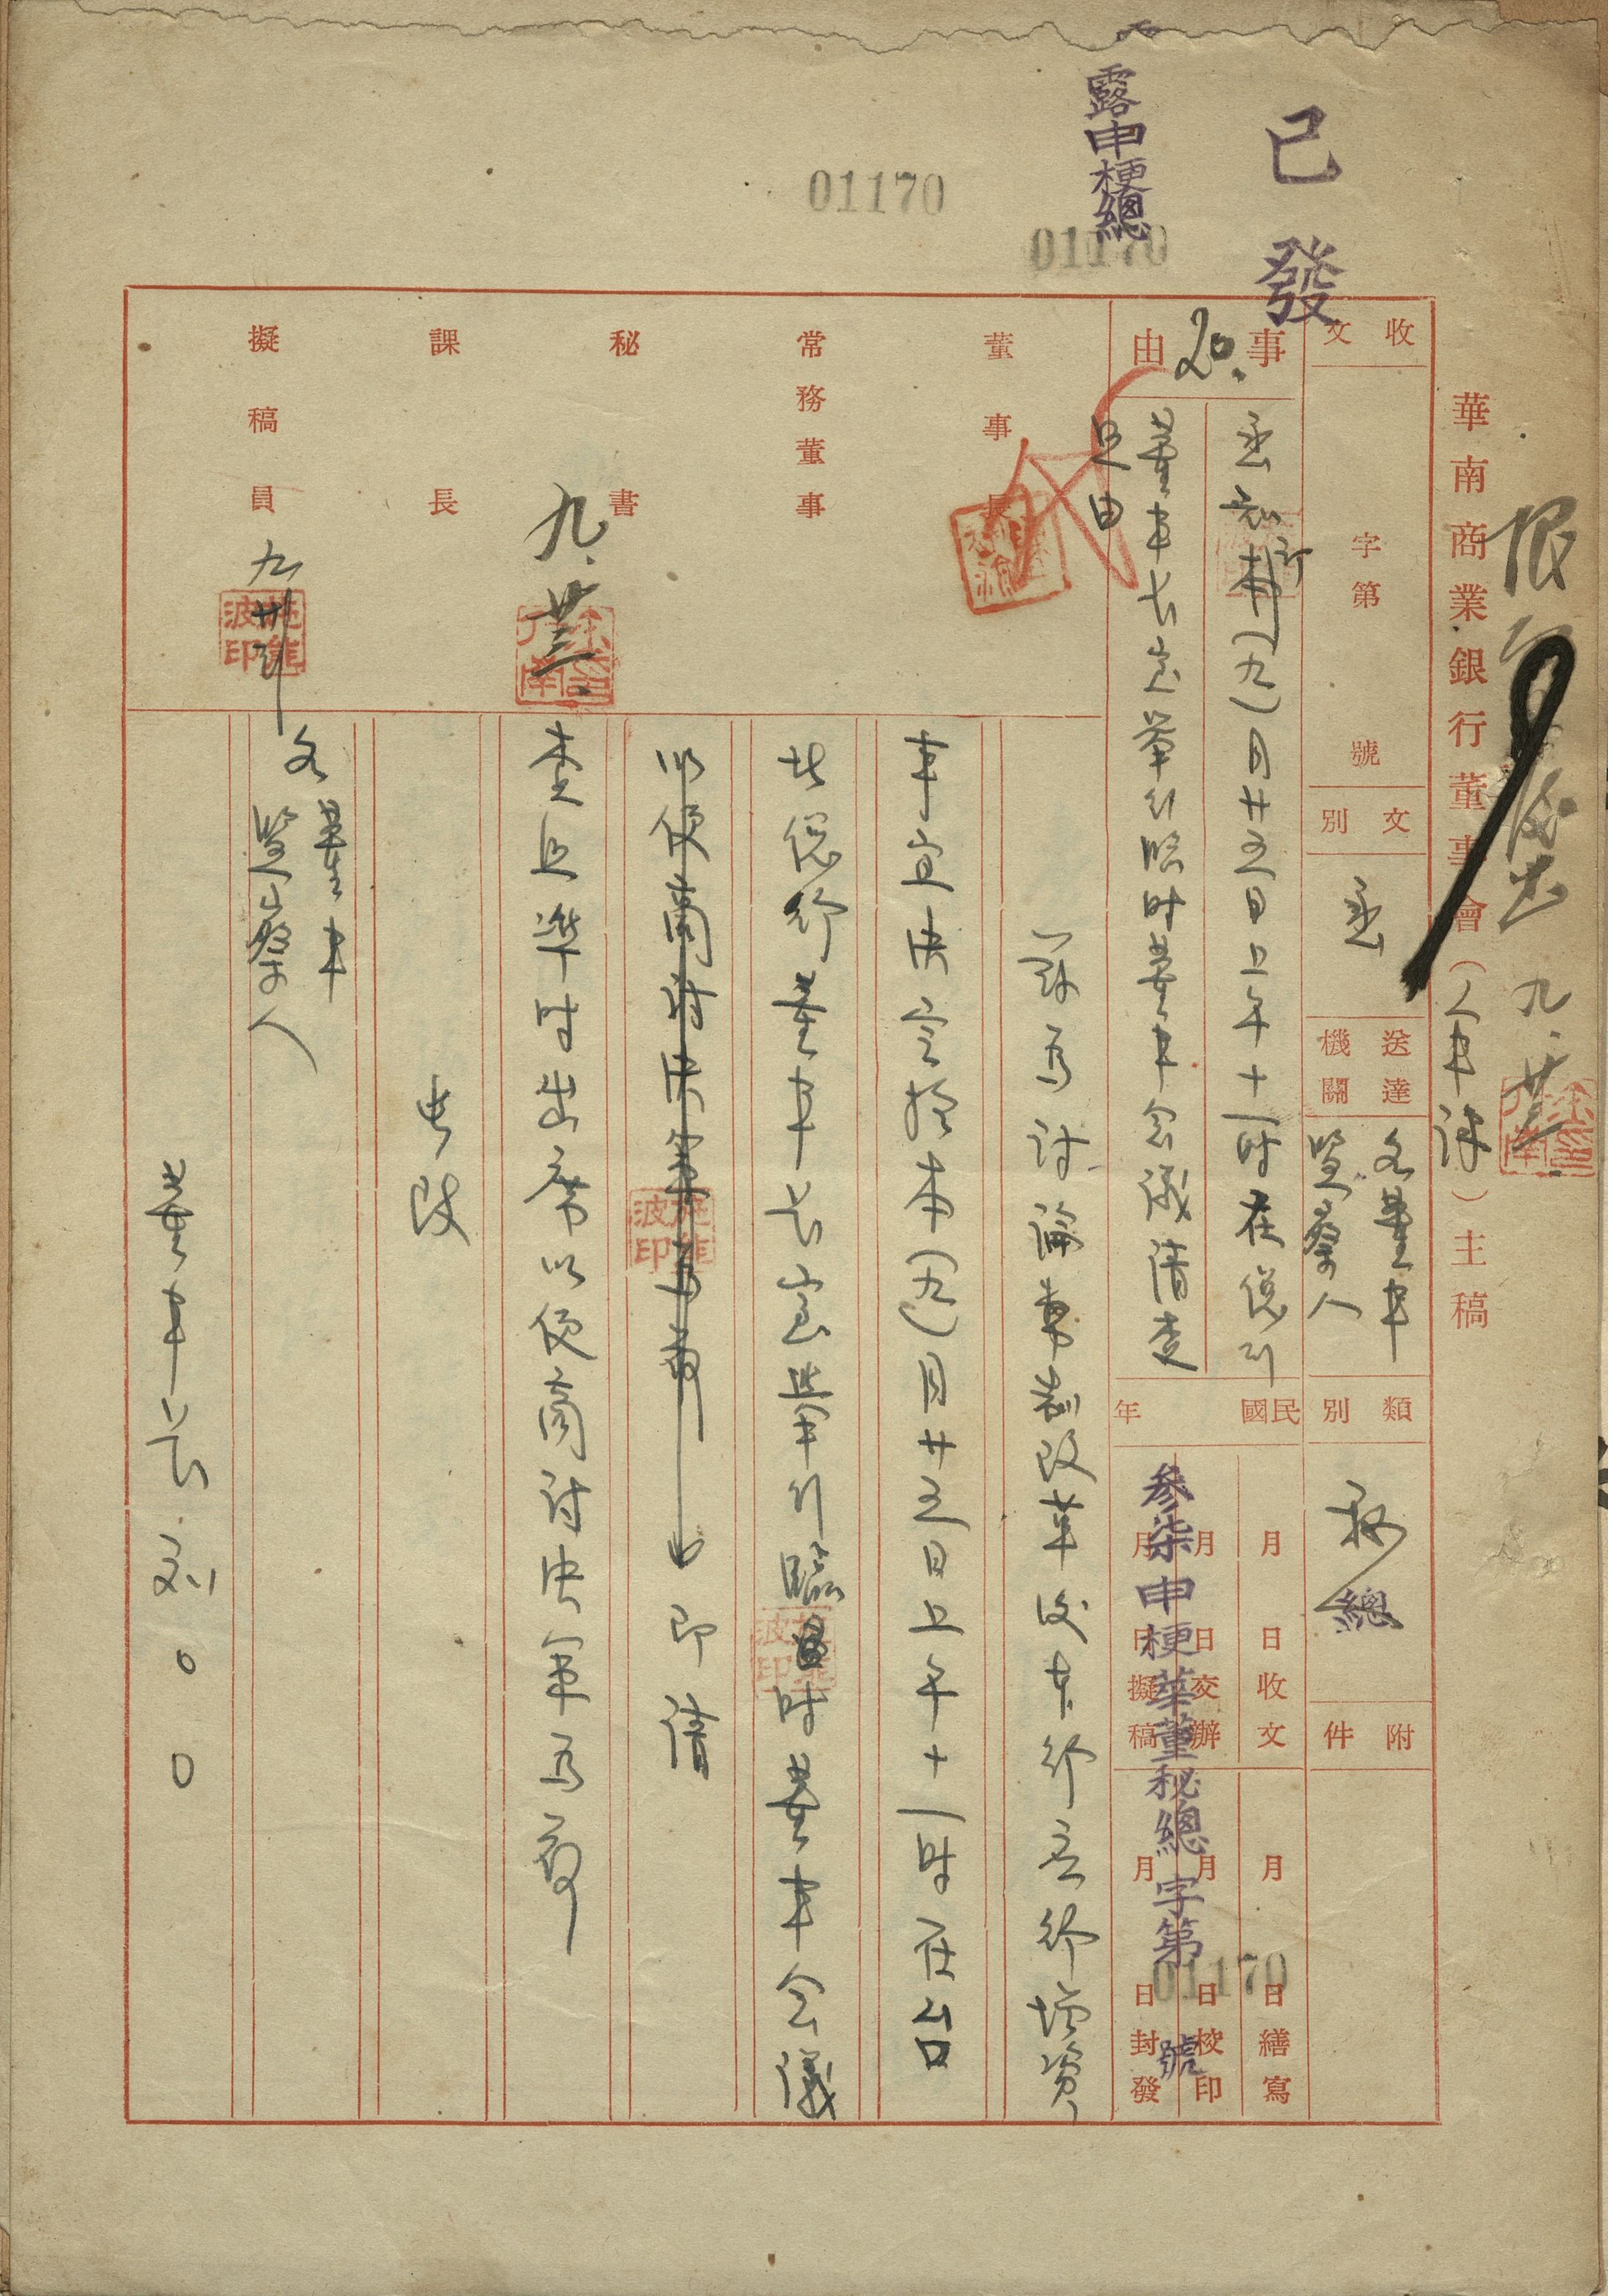 已發
露申梗總
01170
01170
限
後出 九.廿三
華南商業銀行董事會（人事課）主稿
收文
字第
號
文別
函
送達機關
各董事
監察人
類別
秘
總
附件
事由
20.
函知訂本（九）月廿五日上午十一時在總行
董事長室舉行臨時董事會議請查
照由
民國 年
月 日收文
月 日交辦
月 日擬稿
月 日繕寫
月 日校印
月 日封發
參柒申梗華董秘總字第 號
01170
董事長
常務董事
秘書
九.廿三
課長
擬稿員
九 廿三
施
波印
一、茲為討論幣制改革後本行之行增資
事宜決定於本（九）月廿五日上午十一時在台
北總行董事長室舉行臨時董事會議
以便商討決策為荷 即請
查照準時出席以便商討決策為荷
此致
各董事
監察人
董事長 劉〇〇